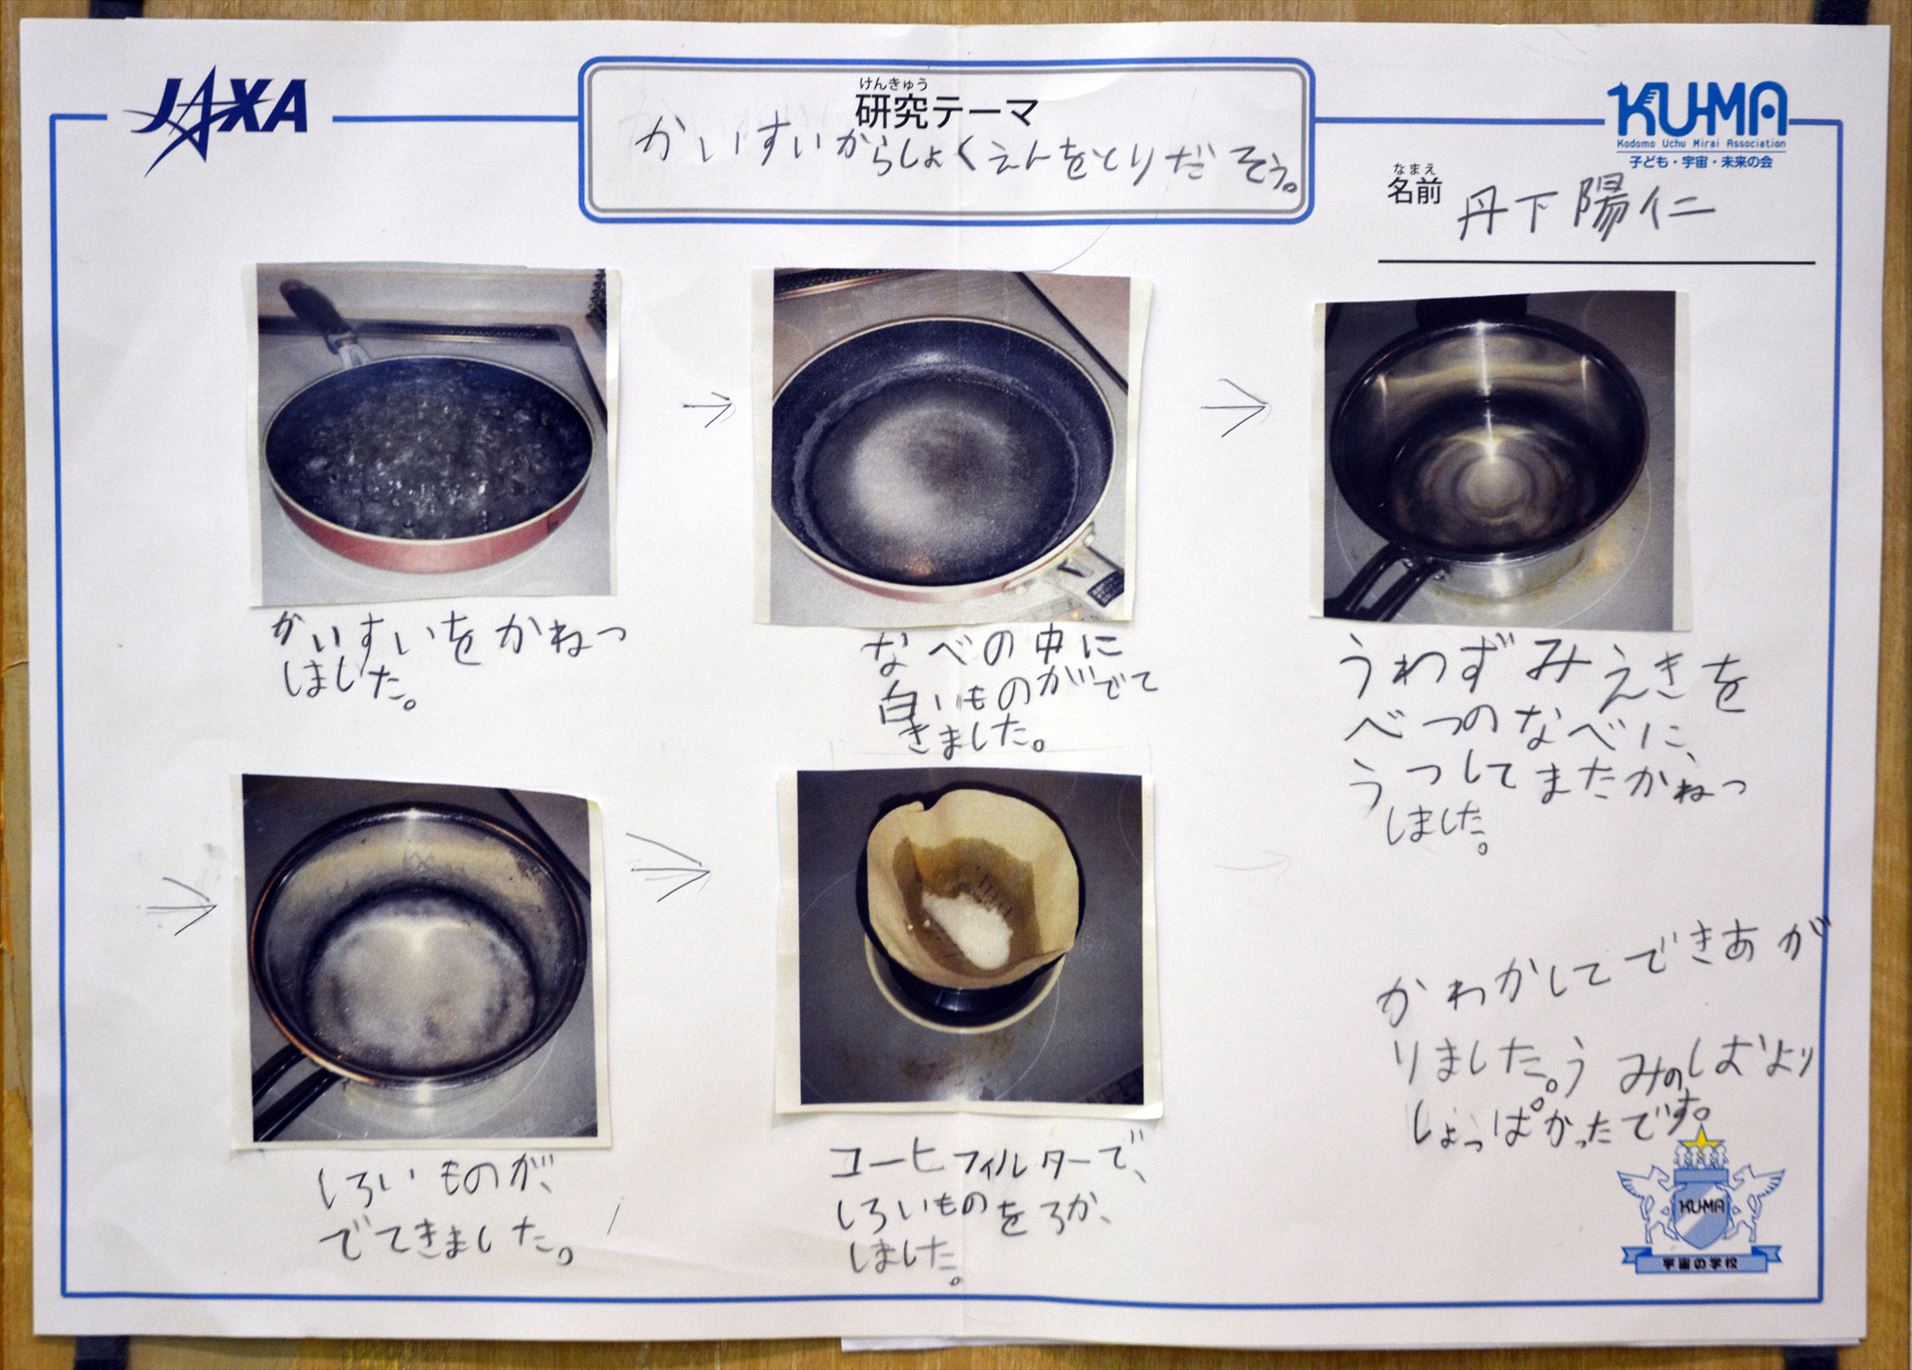 JAXA
けんきゅう
研究テーマ
かいすいからしょくえんをとりだそう。
KU-MA
Kodomo Uchu Mirai Association
子ども・宇宙・未来の会
なまえ
名前 丹下陽仁
かいすいをかねっ
しました。
なべの中に
白いものがでて
きました。
うわずみえきを
べつのなべに、
うつしてまたかねっ
しました。
しろいものが、
でてきました。
コーヒフィルターで、
しろいものをろか、
しました。
かわかしてできあが
りました。うみのしおより
しょっぱかったです。
KU-MA
宇宙の学校